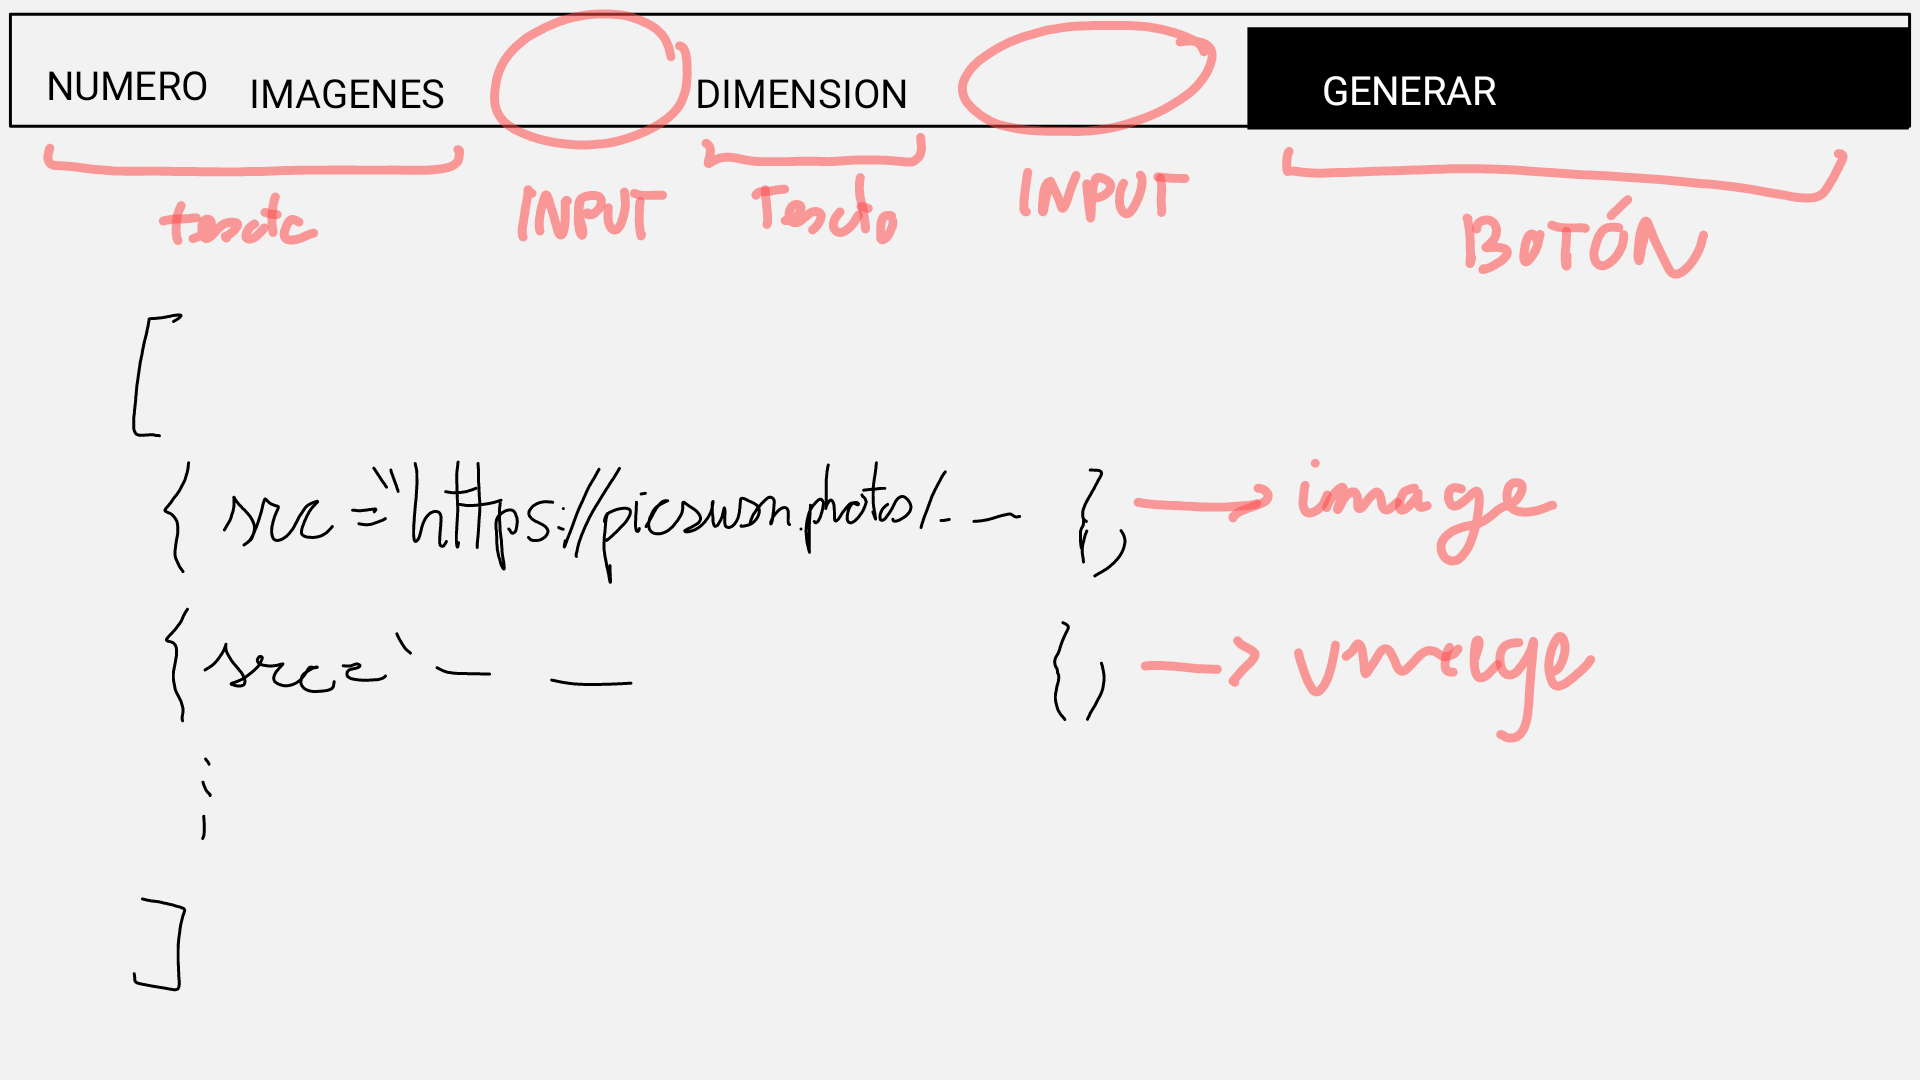 NUMERO IMAGENES DIMENSION GENERAR
texto INPUT Texto INPUT BOTÓN
[
{ src = "https://picsum.photos/. — }, → image
{ src = ` — — }, → image
⋮
]